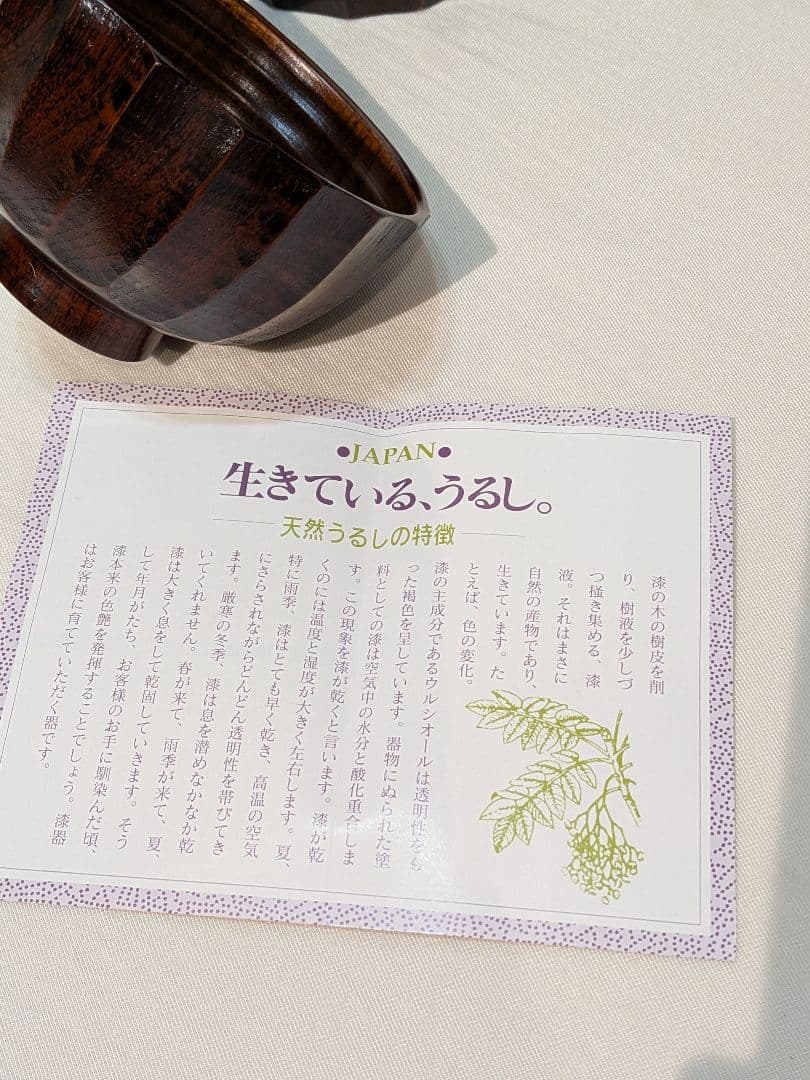 ●JAPAN●
生きている、うるし。
天然うるしの特徴
漆の木の樹皮を削
り、樹液を少しづ
つ掻き集める、漆
液。それはまさに
自然の産物であり、
生きています。た
とえば、色の変化。
漆の主成分であるウルシオールは透明性をも
った褐色を呈しています。器物にぬられた塗
料としての漆は空気中の水分と酸化重合しま
す。この現象を漆が乾くと言います。漆が乾
くのには温度と湿度が大きく左右します。夏、
特に雨季、漆はとても早く乾き、高温の空気
にさらされながらどんどん透明性を帯びてき
ます。厳寒の冬季、漆は息を潜めなかなか乾
いてくれません。春が来て、雨季が来て、夏、
漆は大きく息をして乾固していきます。そう
して年月がたち、お客様のお手に馴染んだ頃、
漆本来の色艶を発揮することでしょう。漆器
はお客様に育てていただく器です。